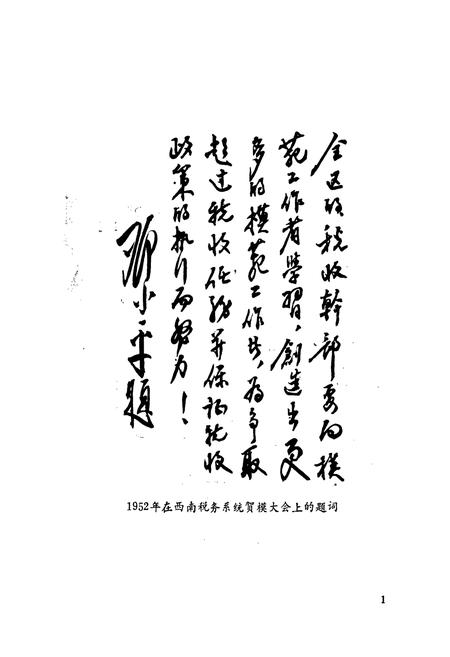 全区的税收幹部要向模
范工作者學習，創造出更
多的模范工作者，为争取
超过税收任務并保証税收
政策的执行而努力！
邓小平题
1952年在西南税务系统贺模大会上的题词
1